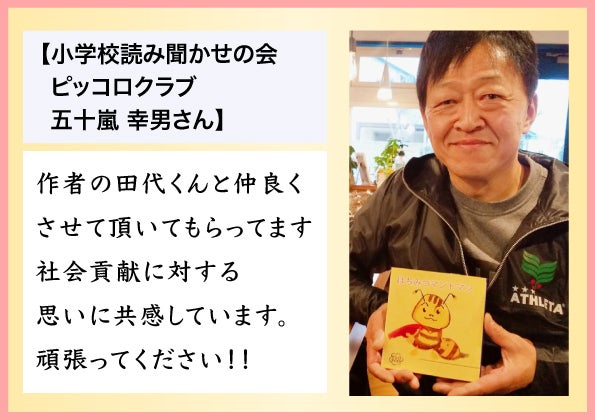 【小学校読み聞かせの会
ピッコロクラブ
五十嵐 幸男さん】
作者の田代くんと仲良く
させて頂いてもらってます
社会貢献に対する
思いに共感しています。
頑張ってください！！
はちみつマントマン
ATHLETA